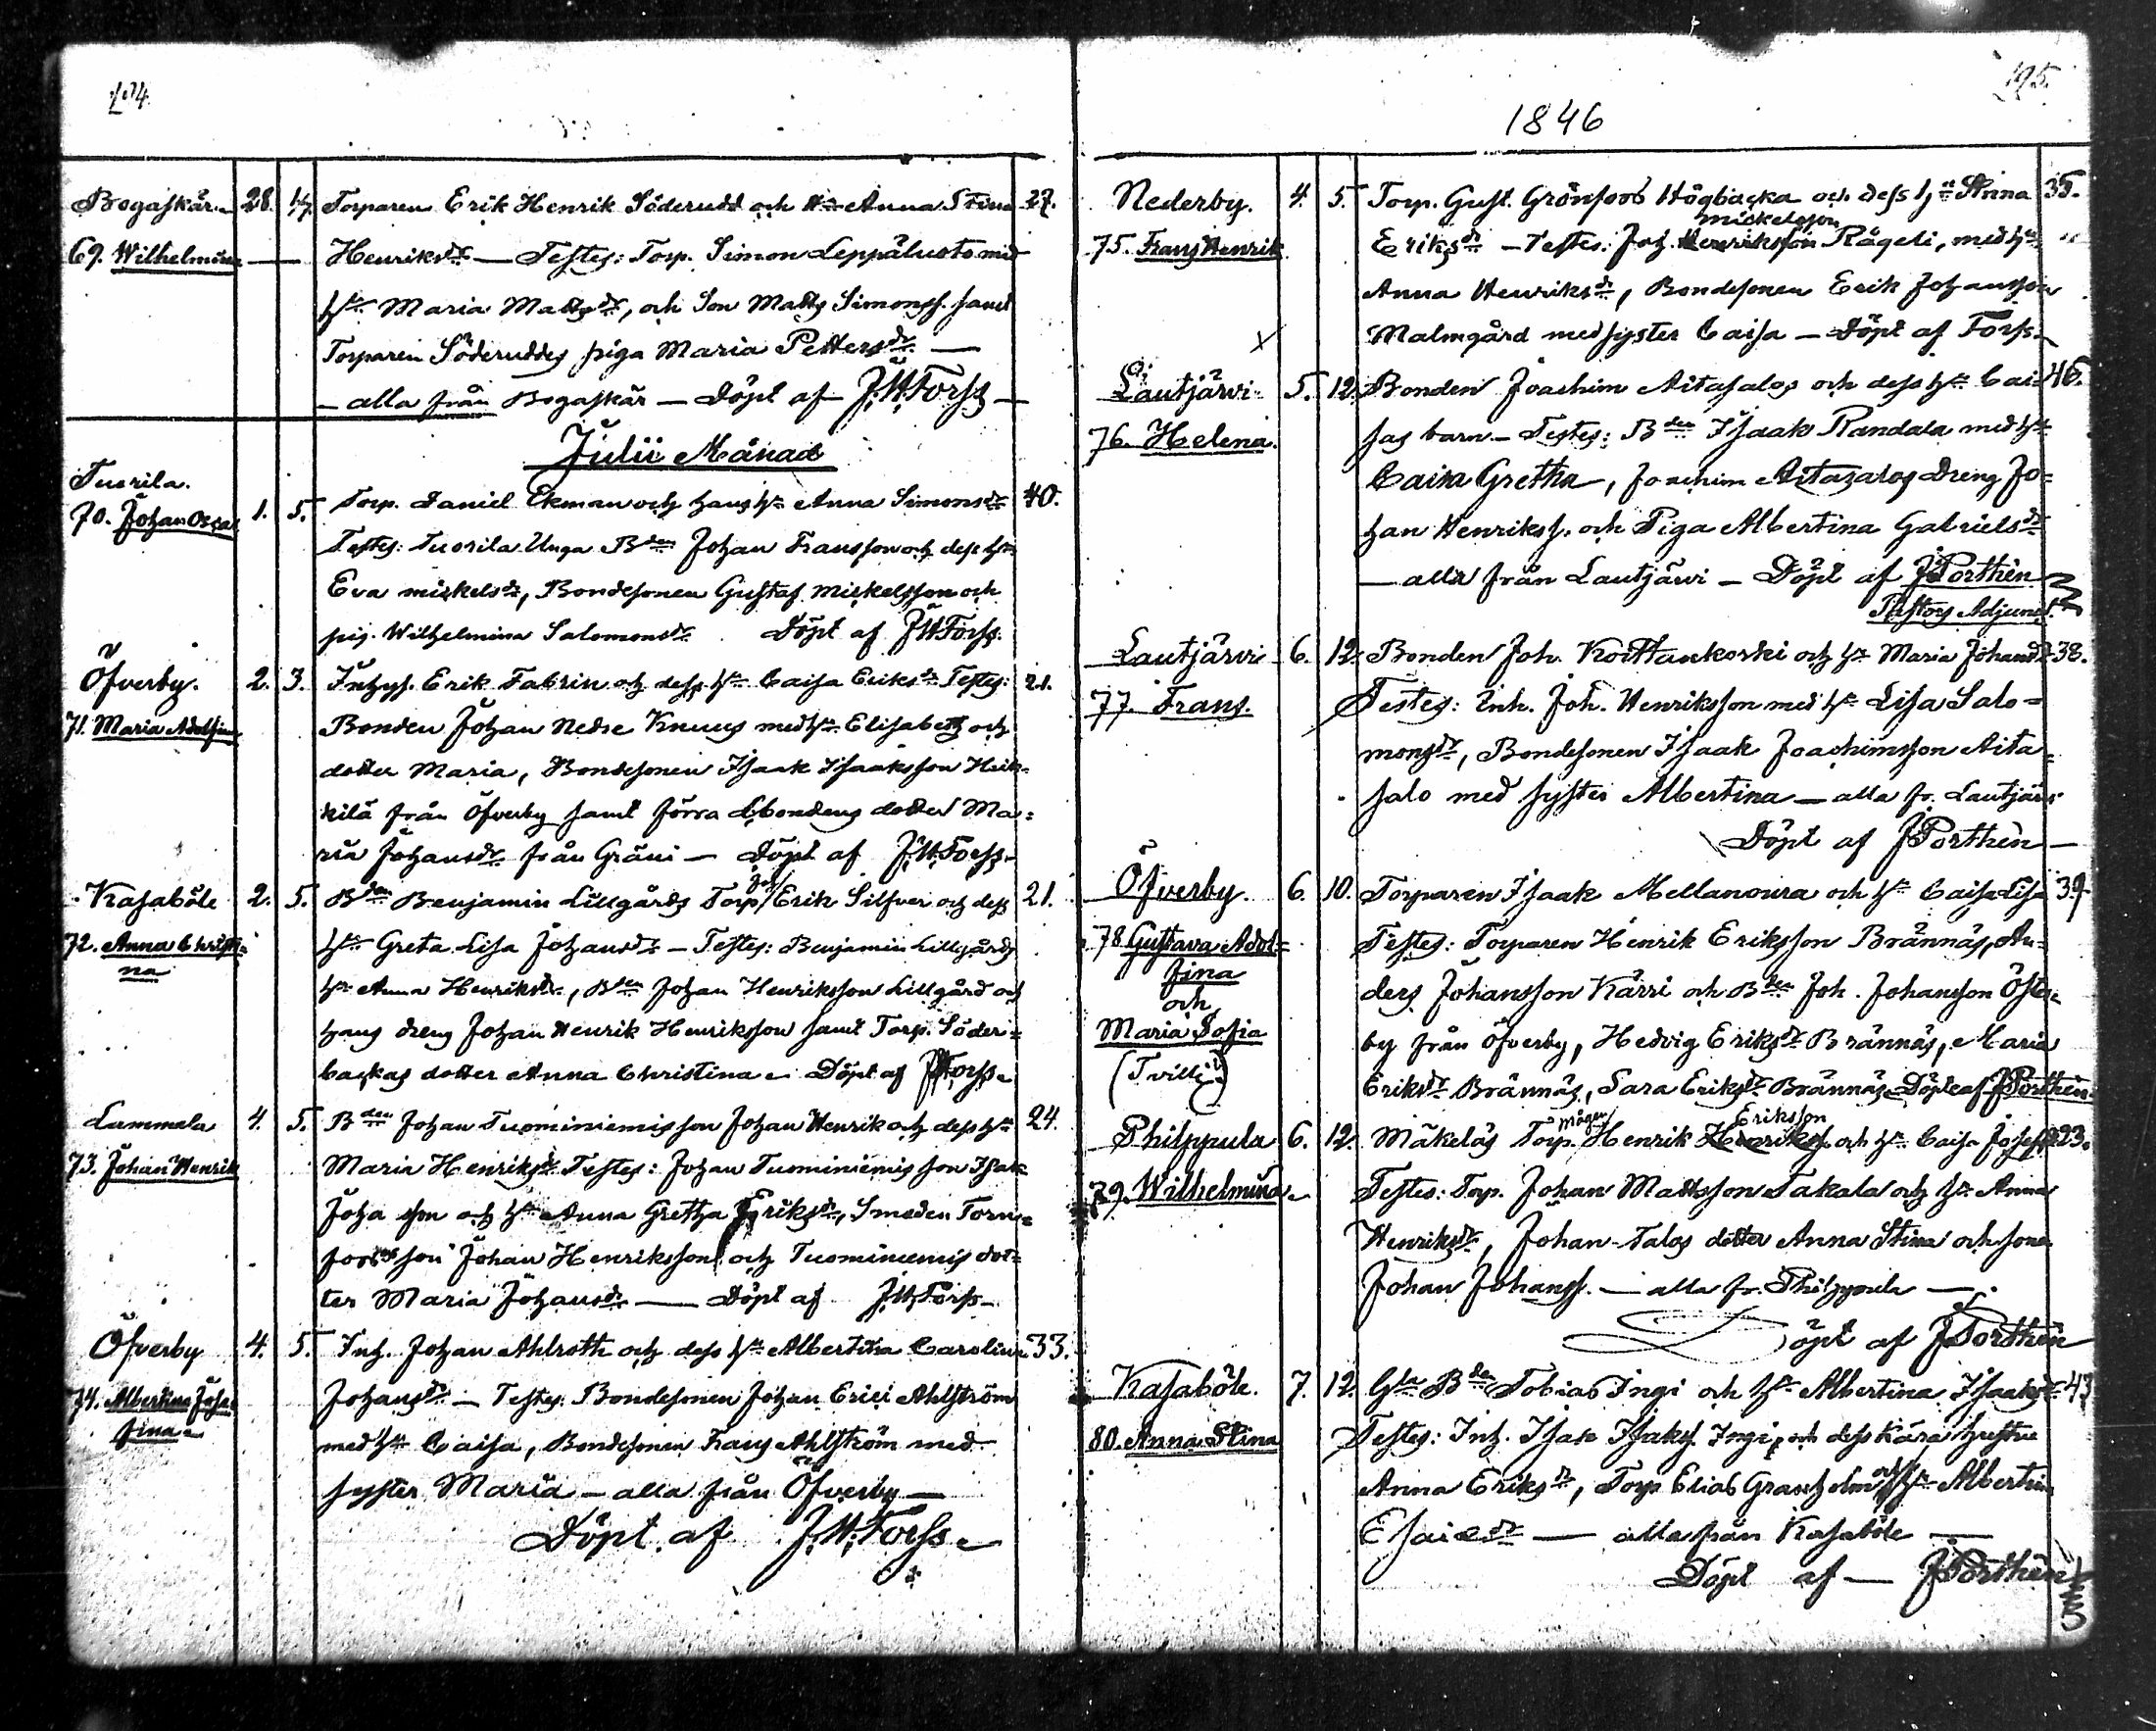 1846
Bogaskär 28. Torparen Erik Henrik Söderudd och Anna Stina 27.
69. Wilhelmina Henriksdr — Testes: Torp. Simon Leppäluoto med
hu Maria Mattsdr, och Son Matts Simonss. samt
Torparen Söderudds piga Maria Pettersdr —
— alla från Bogaskär — Döpt af J.H. Forss —
Julii Månad
Tuorila.
70. Johan Oscar 1. 5. Torp. Daniel Ekman och hans hu Anna Simonsdr 40.
Testes: Tuorila Unga Bden Johan Fransson och dess hu
Eva Mickelsdr, Bondesonen Gustaf Mickelsson och
pig. Wilhelmina Salomonsdr Döpt af J.H. Forss.
Öfverby. 2. 3. Inhys. Erik Fabrin och dess hu Caisa Eriksdr Testes: 21.
71. Maria Adolfina Bonden Johan Nedre Knuus med hu Elisabeth och
dotter Maria, Bondesonen Isaak Isaaksson Heik-
kilä från Öfverby samt förra Lbondens dotter Ma-
ria Johansdr från Gräni — Döpt af J.H. Forss.
Kasaböle 2. 5. Bden Benjamin Lillgårds Torp Erik Silfver och dess 21.
72. Anna Christi= hu Greta Lisa Johansdr — Testes: Benjamin Lillgårds
na
hu Anna Henriksdr, Bden Johan Henriksson Lillgård och
hans dreng Johan Henrik Henriksson samt Torp. Söder=
backas dotter Anna Christina — Döpt af J.H. Forss.
Lammela 4. 5. Bden Johan Tuominiemis son Johan Henrik och dess hu 24.
73. Johan Henrik Maria Henriksdr Testes: Johan Tuominiemis son Isak
Joha sson och hu Anna Gretha Eriksdr, Smeden Torn-
fors son Johan Henriksson och Tuominiemis dot=
ter Maria Johansdr — Döpt af J.H. Forss
Öfverby 4. 5. Inh. Johan Ahlroth och dess hu Albertina Carolina 33.
74. Albertina Jose- Johansdr — Testes. Bondesonen Johan Erici Ahlström
fina med hu Caisa, Bondesonen Frans Ahlström med
syster Maria — alla från Öfverby —
Döpt af J.H. Forss
Nederby. 4. 5. Torp. Gust. Grönfors Högbacka och dess hu Anna 35.
Mickelsson
75. Frans Henrik Eriksdr — Testes: Joh. Henriksson Rägeli, med hu
Anna Henriksdr, Bondesonen Erik Johansson
Malmgård med syster Caisa — Döpt af Forss
Lautjärvi 5. 12. Bonden Joachim Aitasalos och dess hu Cai- 46.
76. Helena. sas barn — Testes: Bden Isaak Randala med hu
Caisa Gretha, Joachim Aitasalos dreng Jo=
han Henrikss. och Piga Albertina Gabrielsdr
— alla från Lautjärvi — Döpt af J Porthén
Pastors Adjunct.
Lautjärvi 6. 12. Bonden Joh. Koittankoski och hu Maria Johansdr 38.
77. Frans. Testes: Inh. Joh. Henriksson med hu Lisa Salo=
monsdr, Bondesonen Isaak Joachimsson Aita=
salo med syster Albertina — alla fr. Lautjärvi
Döpt af J Porthén —
Öfverby. 6. 10. Torparen Isaak Mellanoura och hu Caisa Lisa 39.
78 Gustava Adol= Testes: Torparen Henrik Eriksson Brännäs, An=
fina
och ders Johansson Kärri och Bden Joh. Johansson Öster
Maria Sofia by från Öfverby, Hedvig Eriksdr Brännäs, Maria
(Tvill:) Eriksdr Brännäs, Sara Eriksdr Brännäs Döpte af J Porthén
mågen Eriksson
Philppula 6. 12. Mäkeläs Torp. Henrik Henrikss och hu Caisa Josefsdr 23.
79. Wilhelmina Testes: Torp. Johan Mattsson Takala och hu Anna
Henriksdr, Johan Talos dotter Anna Stina och sonen
Johan Johanss. — alla fr. Philppula —
Döpt af J Porthén
Kasaböle. 7. 12. Gla Bden Tobias Ingi och hu Albertina Isaaksdr 43
80. Anna Stina Testes: Inh. Isak Isakss. Ingi, och dess kära hustru
Anna Eriksdr, Torp Elias Granholm och hu Albertina
Esaiedr — alla från Kasaböle —
Döpt af — J Porthén